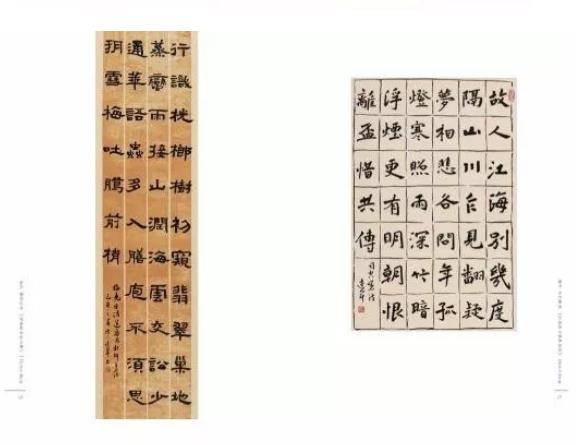 行識桄榔樹初窺翡翠巢地
蒸蠻雨接山潤海雲交訟少
通華語蟲多入膳庖不須思
朔雪梅吐臈前梢
故人江海別幾度
隔山川乍見翻疑
夢相悲各問年孤
燈寒照雨深竹暗
浮煙更有明朝恨
離盃惜共傳
司空曙詩